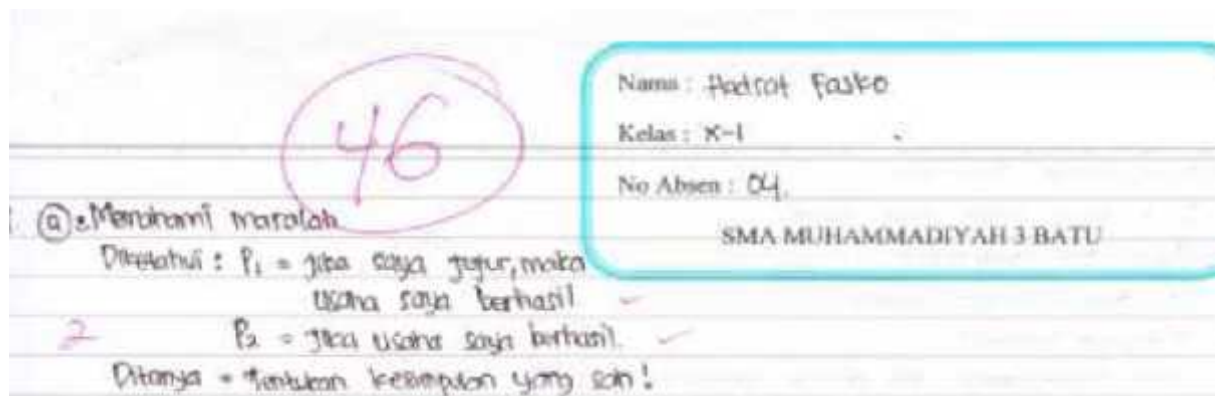 46
Nama : Hadrat Fasko
Kelas : X-1
No Absen : 04.
SMA MUHAMMADIYAH 3 BATU
a Memahami masalah
Diketahui : P1 = Jika saya jujur, maka
usaha saya berhasil
2 P2 = Jika usaha saya berhasil.
Ditanya = Tentukan kesimpulan yang sah!